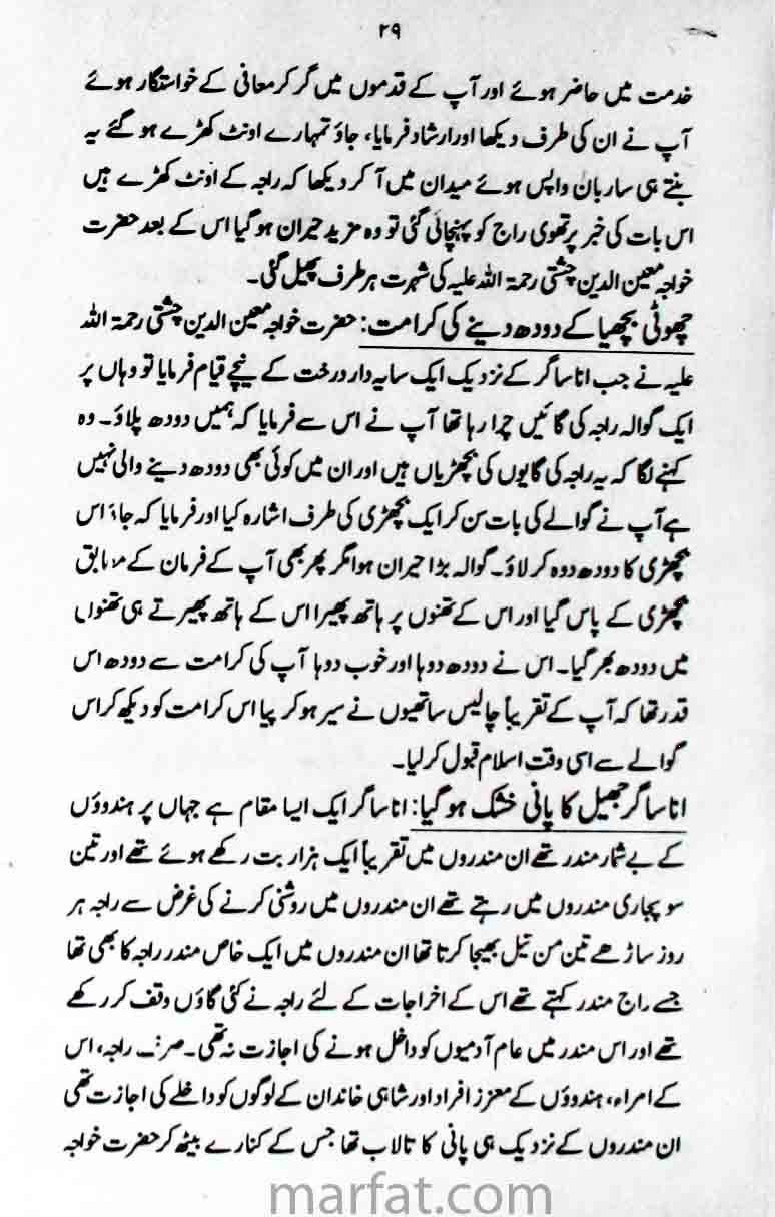 ۲۹
خدمت میں حاضر ہوئے اور آپ کے قدموں میں گر کر معافی کے خواستگار ہوئے
آپ نے ان کی طرف دیکھا اور ارشاد فرمایا، جاؤ تمہارے اونٹ کھڑے ہو گئے یہ
سنتے ہی ساربان واپس ہوئے میدان میں آ کر دیکھا کہ راجہ کے اونٹ کھڑے ہیں
اس بات کی خبر پرتھوی راج کو پہنچائی گئی تو وہ مزید حیران ہو گیا اس کے بعد حضرت
خواجہ معین الدین چشتی رحمۃ اللہ علیہ کی شہرت ہر طرف پھیل گئی۔
چھوٹی بچھیا کے دودھ دینے کی کرامت: حضرت خواجہ معین الدین چشتی رحمۃ اللہ
علیہ نے جب انا ساگر کے نزدیک ایک سایہ دار درخت کے نیچے قیام فرمایا تو وہاں پر
ایک گوالہ راجہ کی گائیں چرا رہا تھا آپ نے اس سے فرمایا کہ ہمیں دودھ پلاؤ۔ وہ
کہنے لگا کہ یہ راجہ کی گایوں کی بچھڑیاں ہیں اور ان میں کوئی بھی دودھ دینے والی نہیں
ہے آپ نے گوالے کی بات سن کر ایک بچھڑی کی طرف اشارہ کیا اور فرمایا کہ جاؤ اس
بچھڑی کا دودھ دوہ کر لاؤ۔ گوالہ بڑا حیران ہوا مگر پھر بھی آپ کے فرمان کے مطابق
بچھڑی کے پاس گیا اور اس کے تھنوں پر ہاتھ پھیرا اس کے ہاتھ پھیرتے ہی تھنوں
میں دودھ بھر گیا۔ اس نے دودھ دوہا اور خوب دوہا آپ کی کرامت سے دودھ اس
قدر تھا کہ آپ کے تقریباً چالیس ساتھیوں نے سیر ہو کر پیا اس کرامت کو دیکھ کر اس
گوالے سے اسی وقت اسلام قبول کر لیا۔
انا ساگر جھیل کا پانی خشک ہو گیا: انا ساگر ایک ایسا مقام ہے جہاں پر ہندوؤں
کے بے شمار مندر تھے ان مندروں میں تقریباً ایک ہزار بت رکھے ہوئے تھے اور تین
سو پجاری مندروں میں رہتے تھے ان مندروں میں روشنی کرنے کی غرض سے راجہ ہر
روز ساڑھے تین من تیل بھیجا کرتا تھا ان مندروں میں ایک خاص مندر راجہ کا بھی تھا
جسے راج مندر کہتے تھے اس کے اخراجات کے لئے راجہ نے کئی گاؤں وقف کر رکھے
تھے اور اس مندر میں عام آدمیوں کو داخل ہونے کی اجازت نہ تھی۔ صرف راجہ، اس
کے امراء، ہندوؤں کے معزز افراد اور شاہی خاندان کے لوگوں کو داخلے کی اجازت تھی
ان مندروں کے نزدیک ہی پانی کا تالاب تھا جس کے کنارے بیٹھ کر حضرت خواجہ
marfat.com